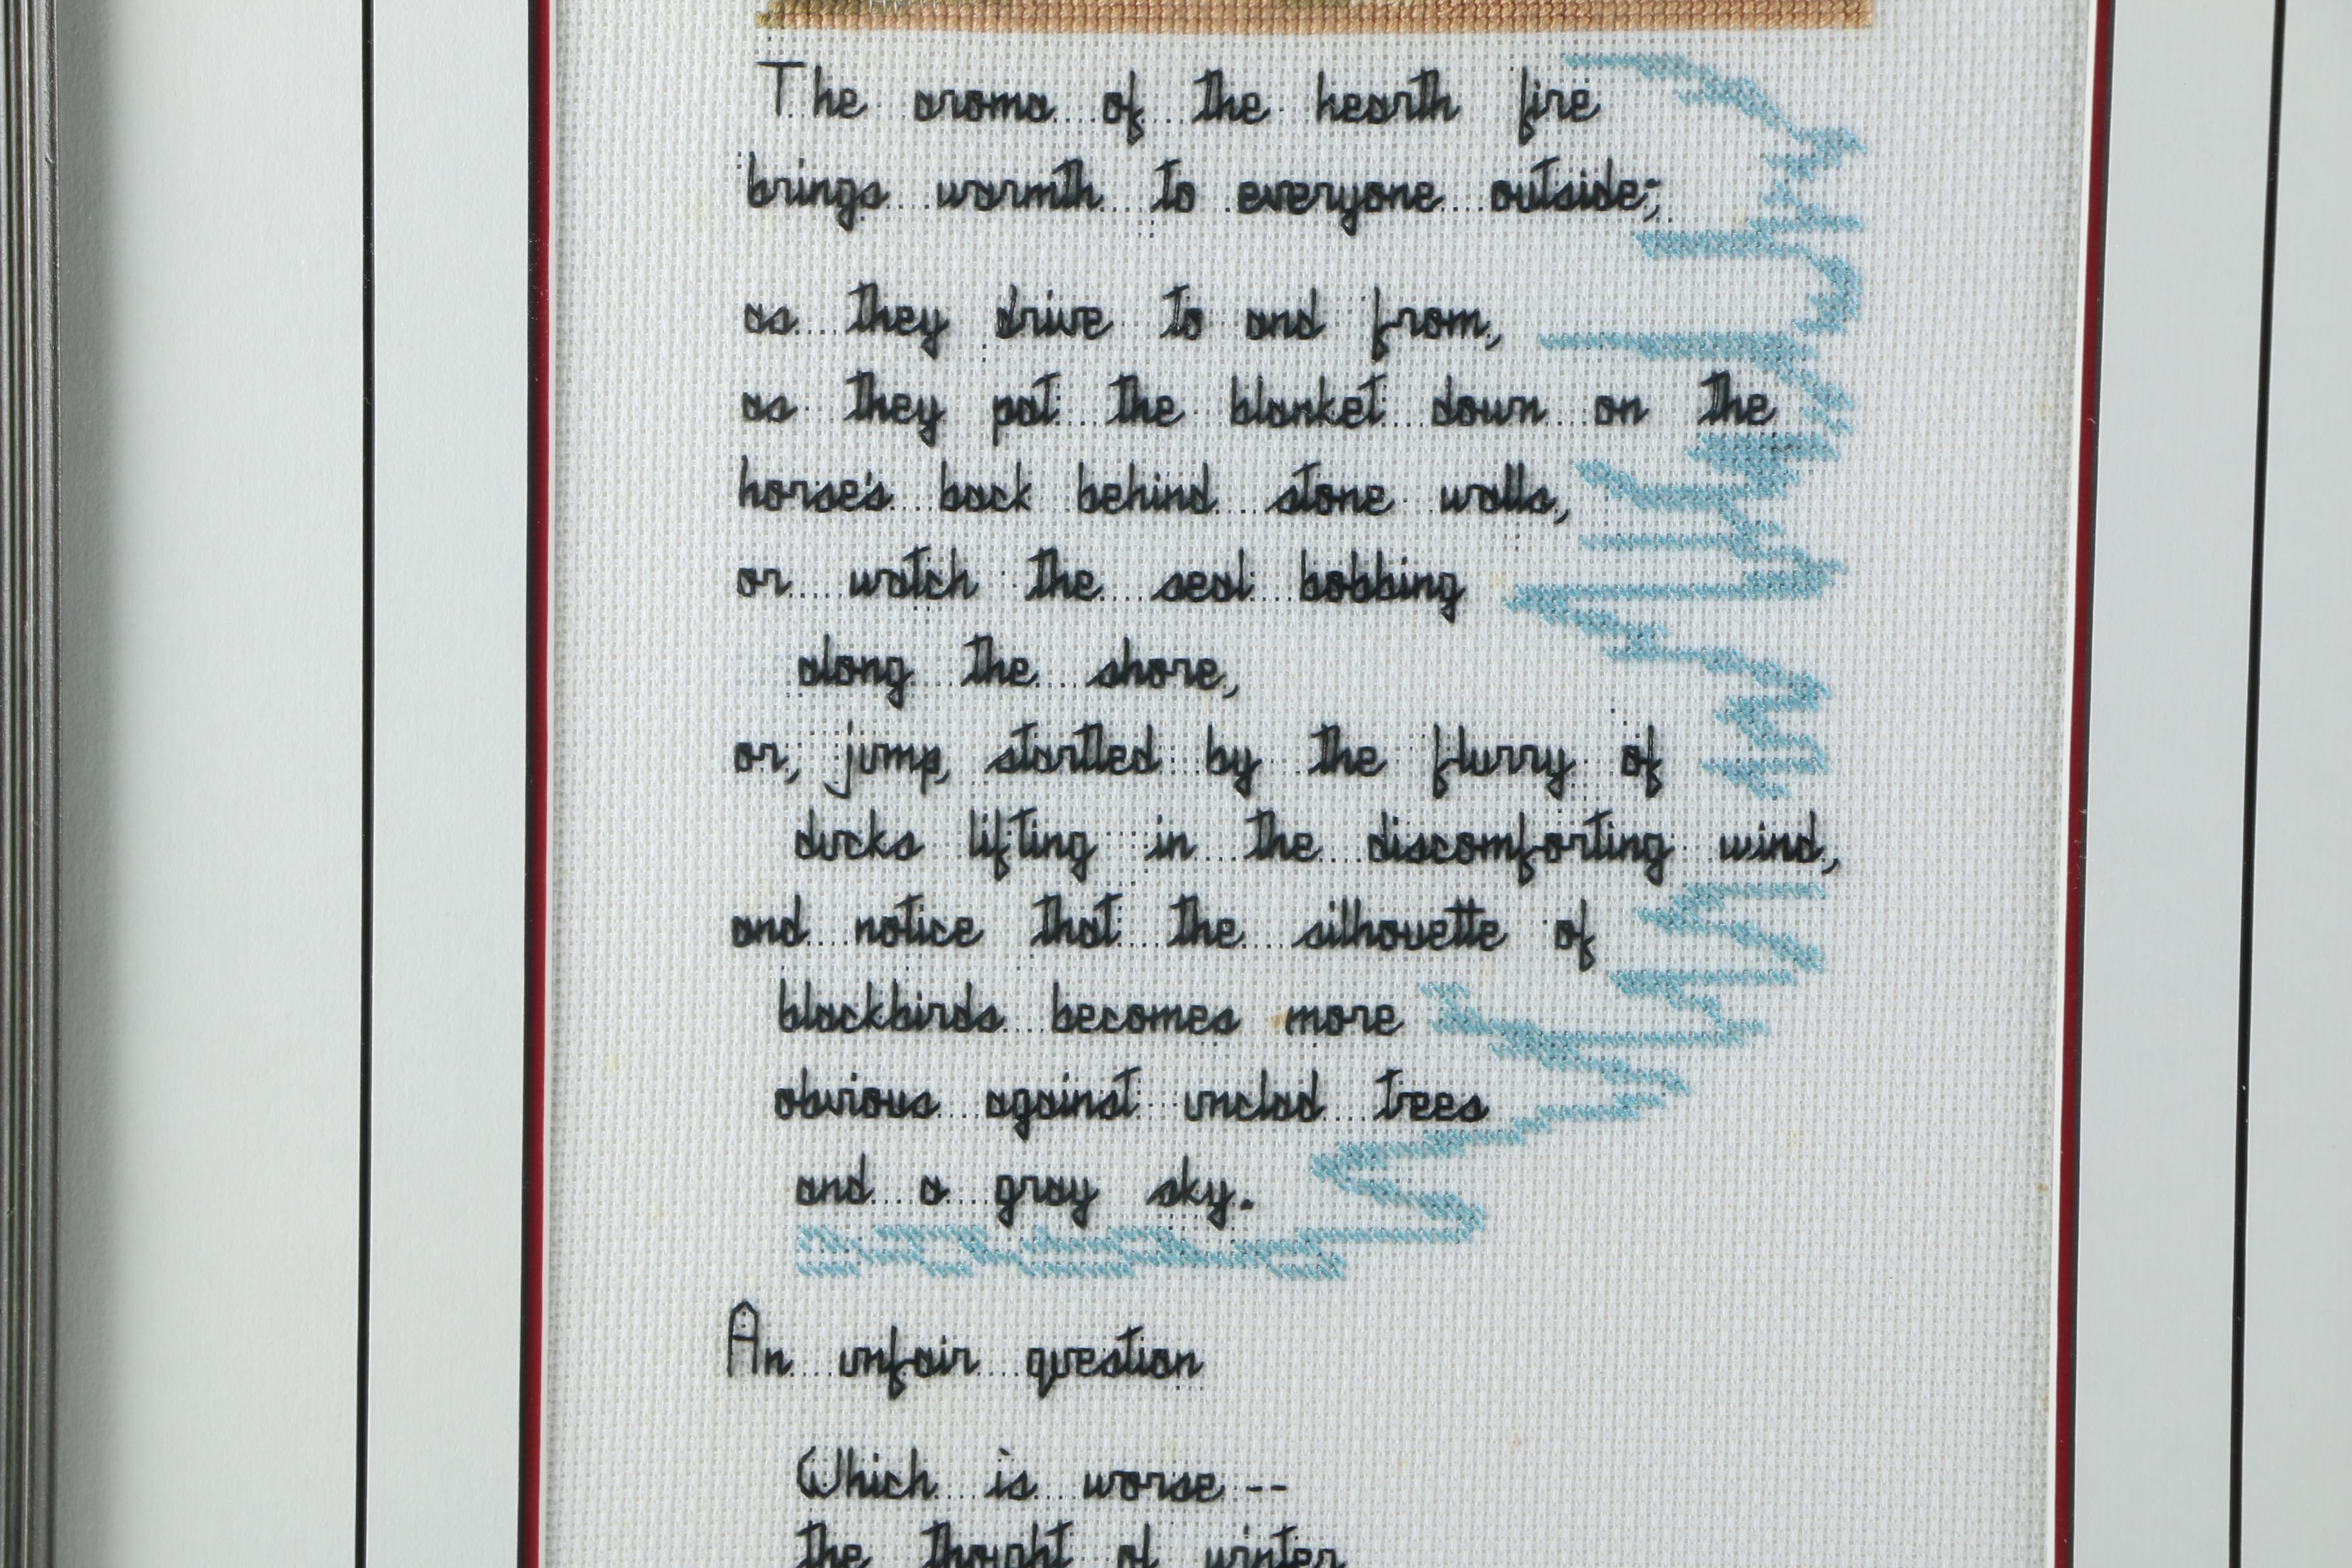 The aroma of the hearth fire
brings warmth to everyone outside;
as they drive to and from,
as they pat the blanket down on the
horse's back behind stone walls,
or watch the seal bobbing
along the shore,
or, jump, startled by the flurry of
ducks lifting in the discomforting wind,
and notice that the silhouette of
blackbirds becomes more
obvious against unclad trees
and a gray sky.
An unfair question
Which is worse --
the thought of winter